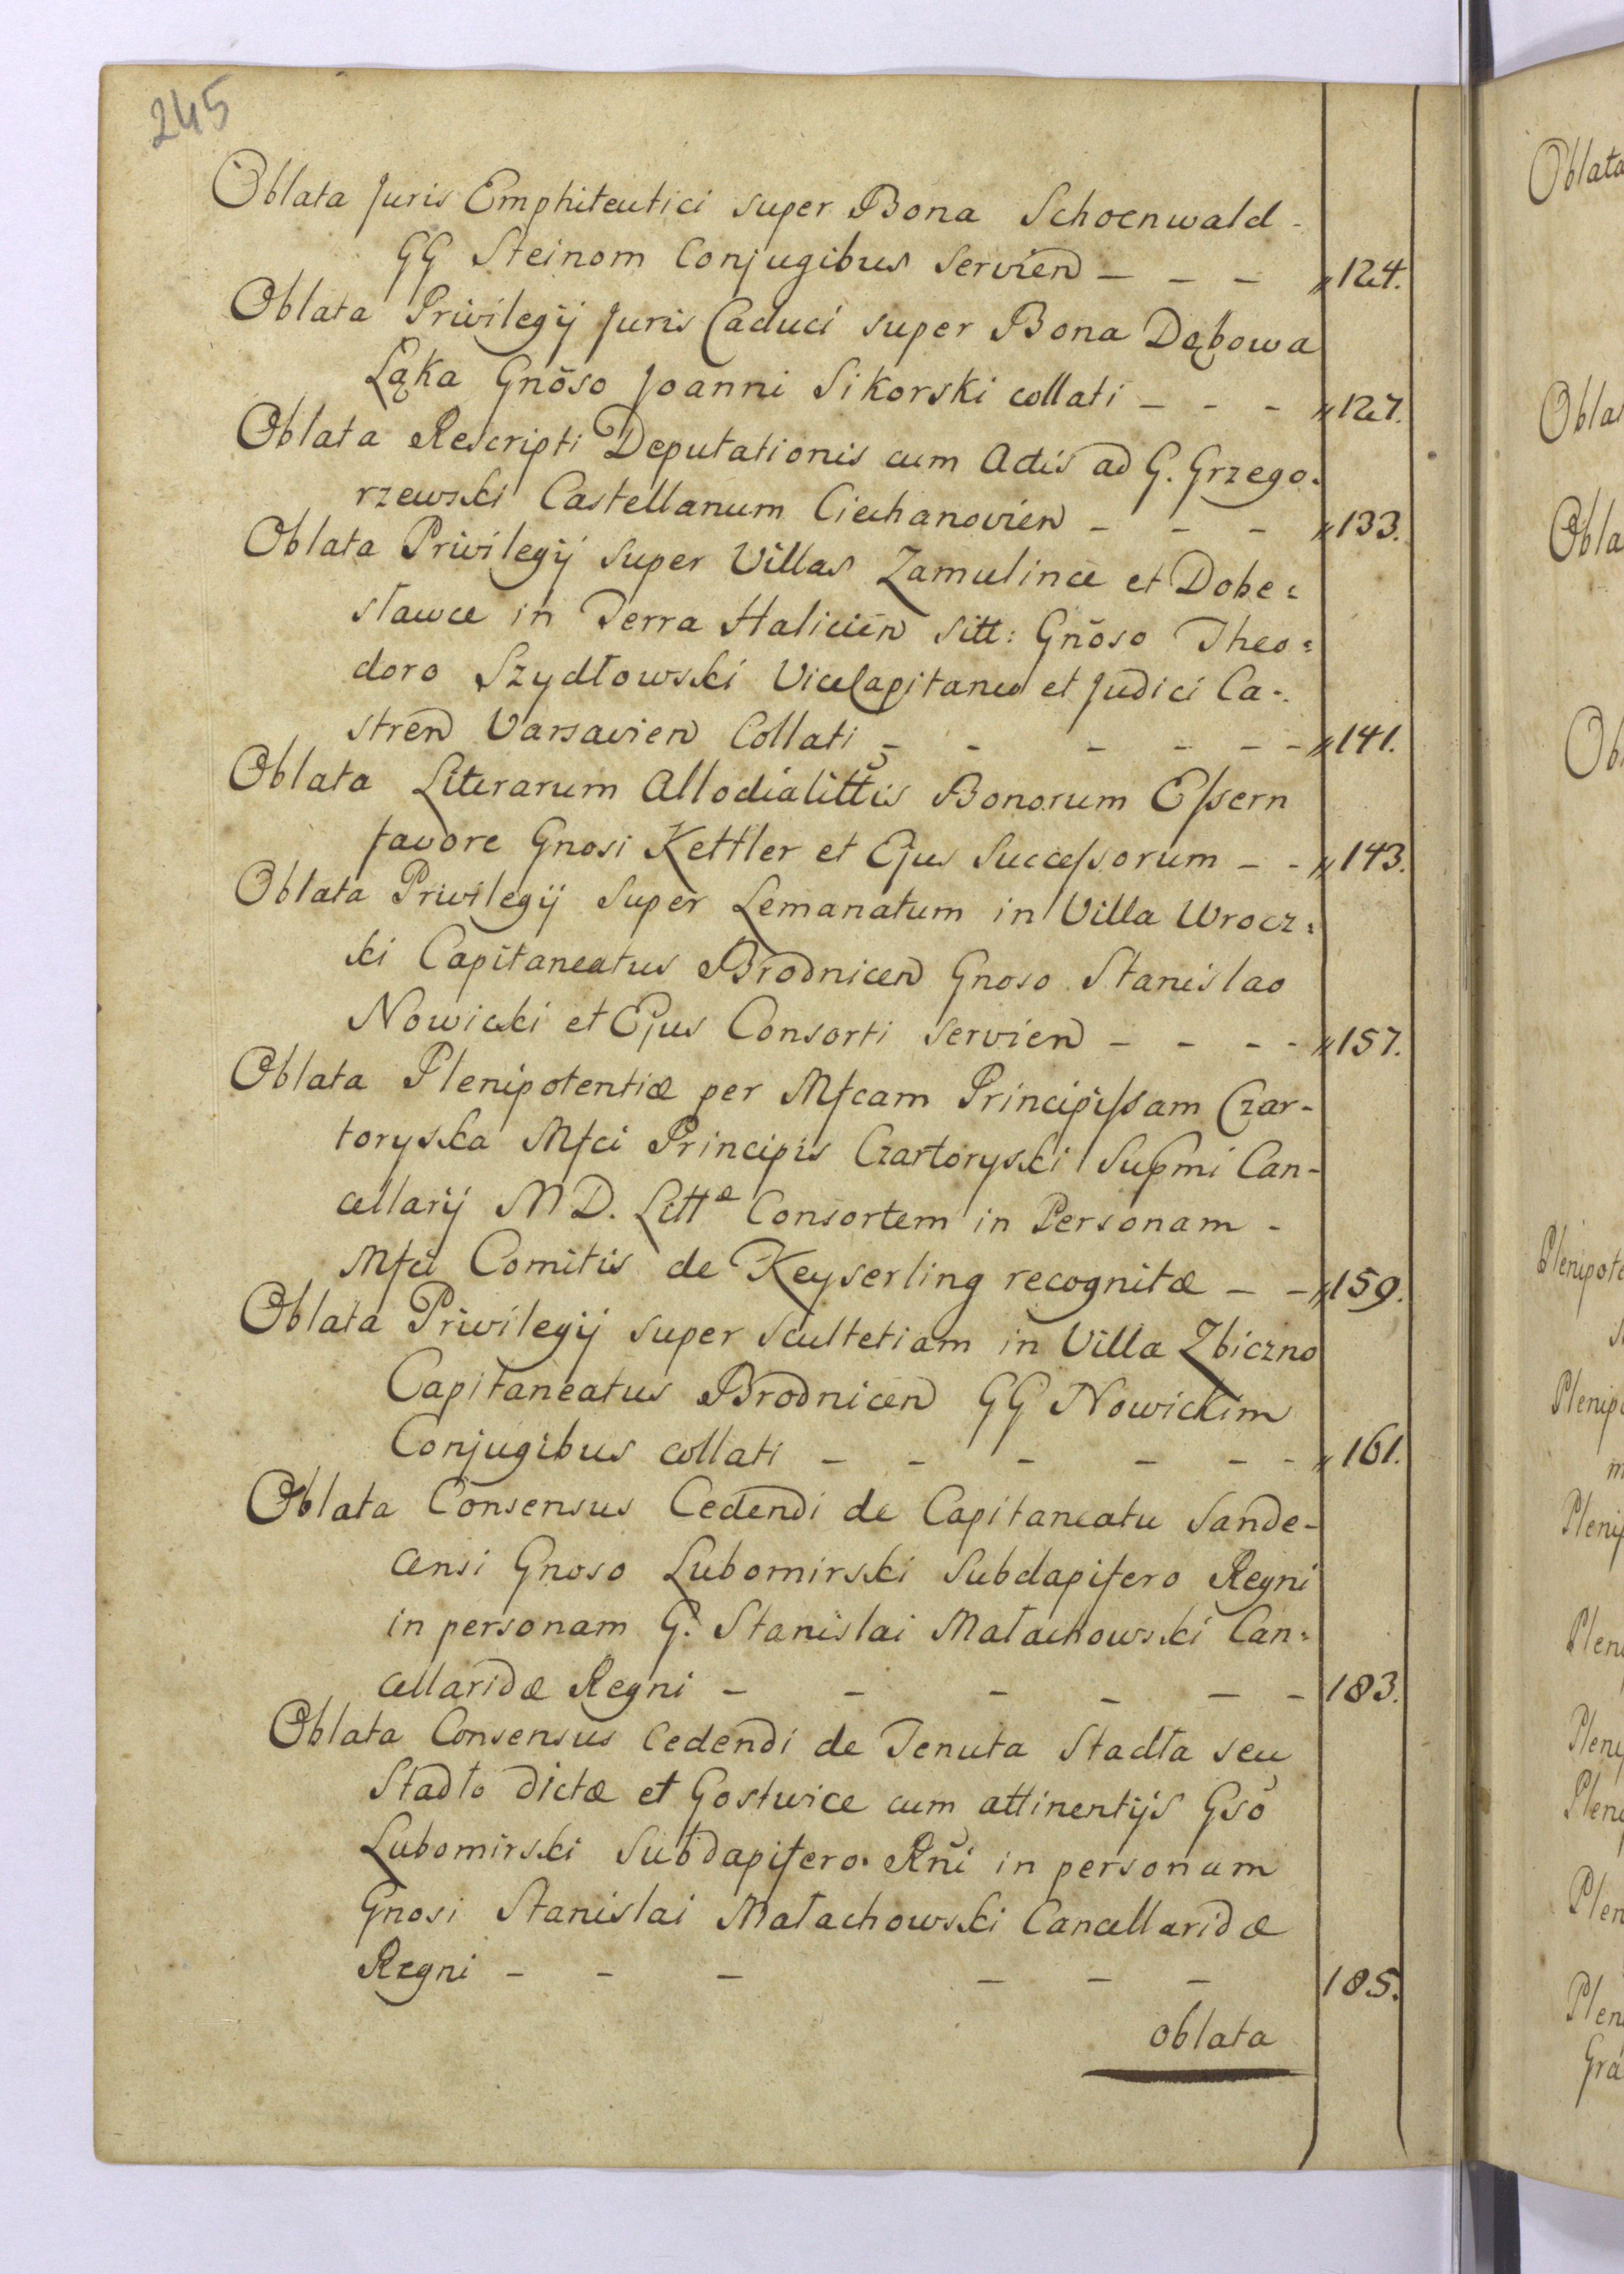 245
Oblata Juris Emphiteutici super Bona Schoenwald -
GG Steinom Conjugibus Servien̄ - - - „124.
Oblata Privilegij Juris Caduci super Bona Dąbowa
Łąka Gnōso Joanni Sikorski collati - - - „127.
Oblata Rescripti Deputationis cum Actis ad G. Grzego-
rzewski Castellanum Ciechanovien̄ - - - „133.
Oblata Privilegij super Villas Zamulince et Dobe=
sławce in Terra Halicien̄ sitt: Gnōso Theo=
doro Szydłowski ViceCapitaneo et Judici Ca-
stren̄ Varsavien̄ Collati - - - - - - „141.
Oblata Literarum Allodialittis Bonorum Essern
favore Gnosi Kettler et Ejus Successorum - - „143.
Oblata Privilegij super Lemanatum in Villa Wrocz=
ki Capitaneatus Brodnicen̄ Gnoso Stanislao
Nowicki et Ejus Consorti servien̄ - - - - „157.
Oblata Plenipotentiæ per Mfcam Principissam Czar-
toryska Mfci Principis Czartoryski Supmi Can-
cellarij M D. Littæ Consortem in Personam -
Mfci Comitis de Keyserling recognitæ - - „159.
Oblata Privilegij super scultetiam in Villa Zbiczno
Capitaneatus Brodnicen̄ GG Nowickim
Conjugibus collati - - - - - - „161.
Oblata Consensus Cedendi de Capitaneatu Sande-
censi Gnoso Lubomirski Subdapifero Regni
in personam G. Stanislai Małachowski Can=
cellaridæ Regni - - - - - - 183.
Oblata Consensus Cedendi de Tenuta Stadła seu
Stadło dictæ et Gostwice cum attinentijs Gsō
Lubomirski Subdapifero Rn̄i in personam
Gnosi Stanislai Małachowski Cancellaridæ
Regni - - - - - - 185.
oblata
Oblata
Plenipote